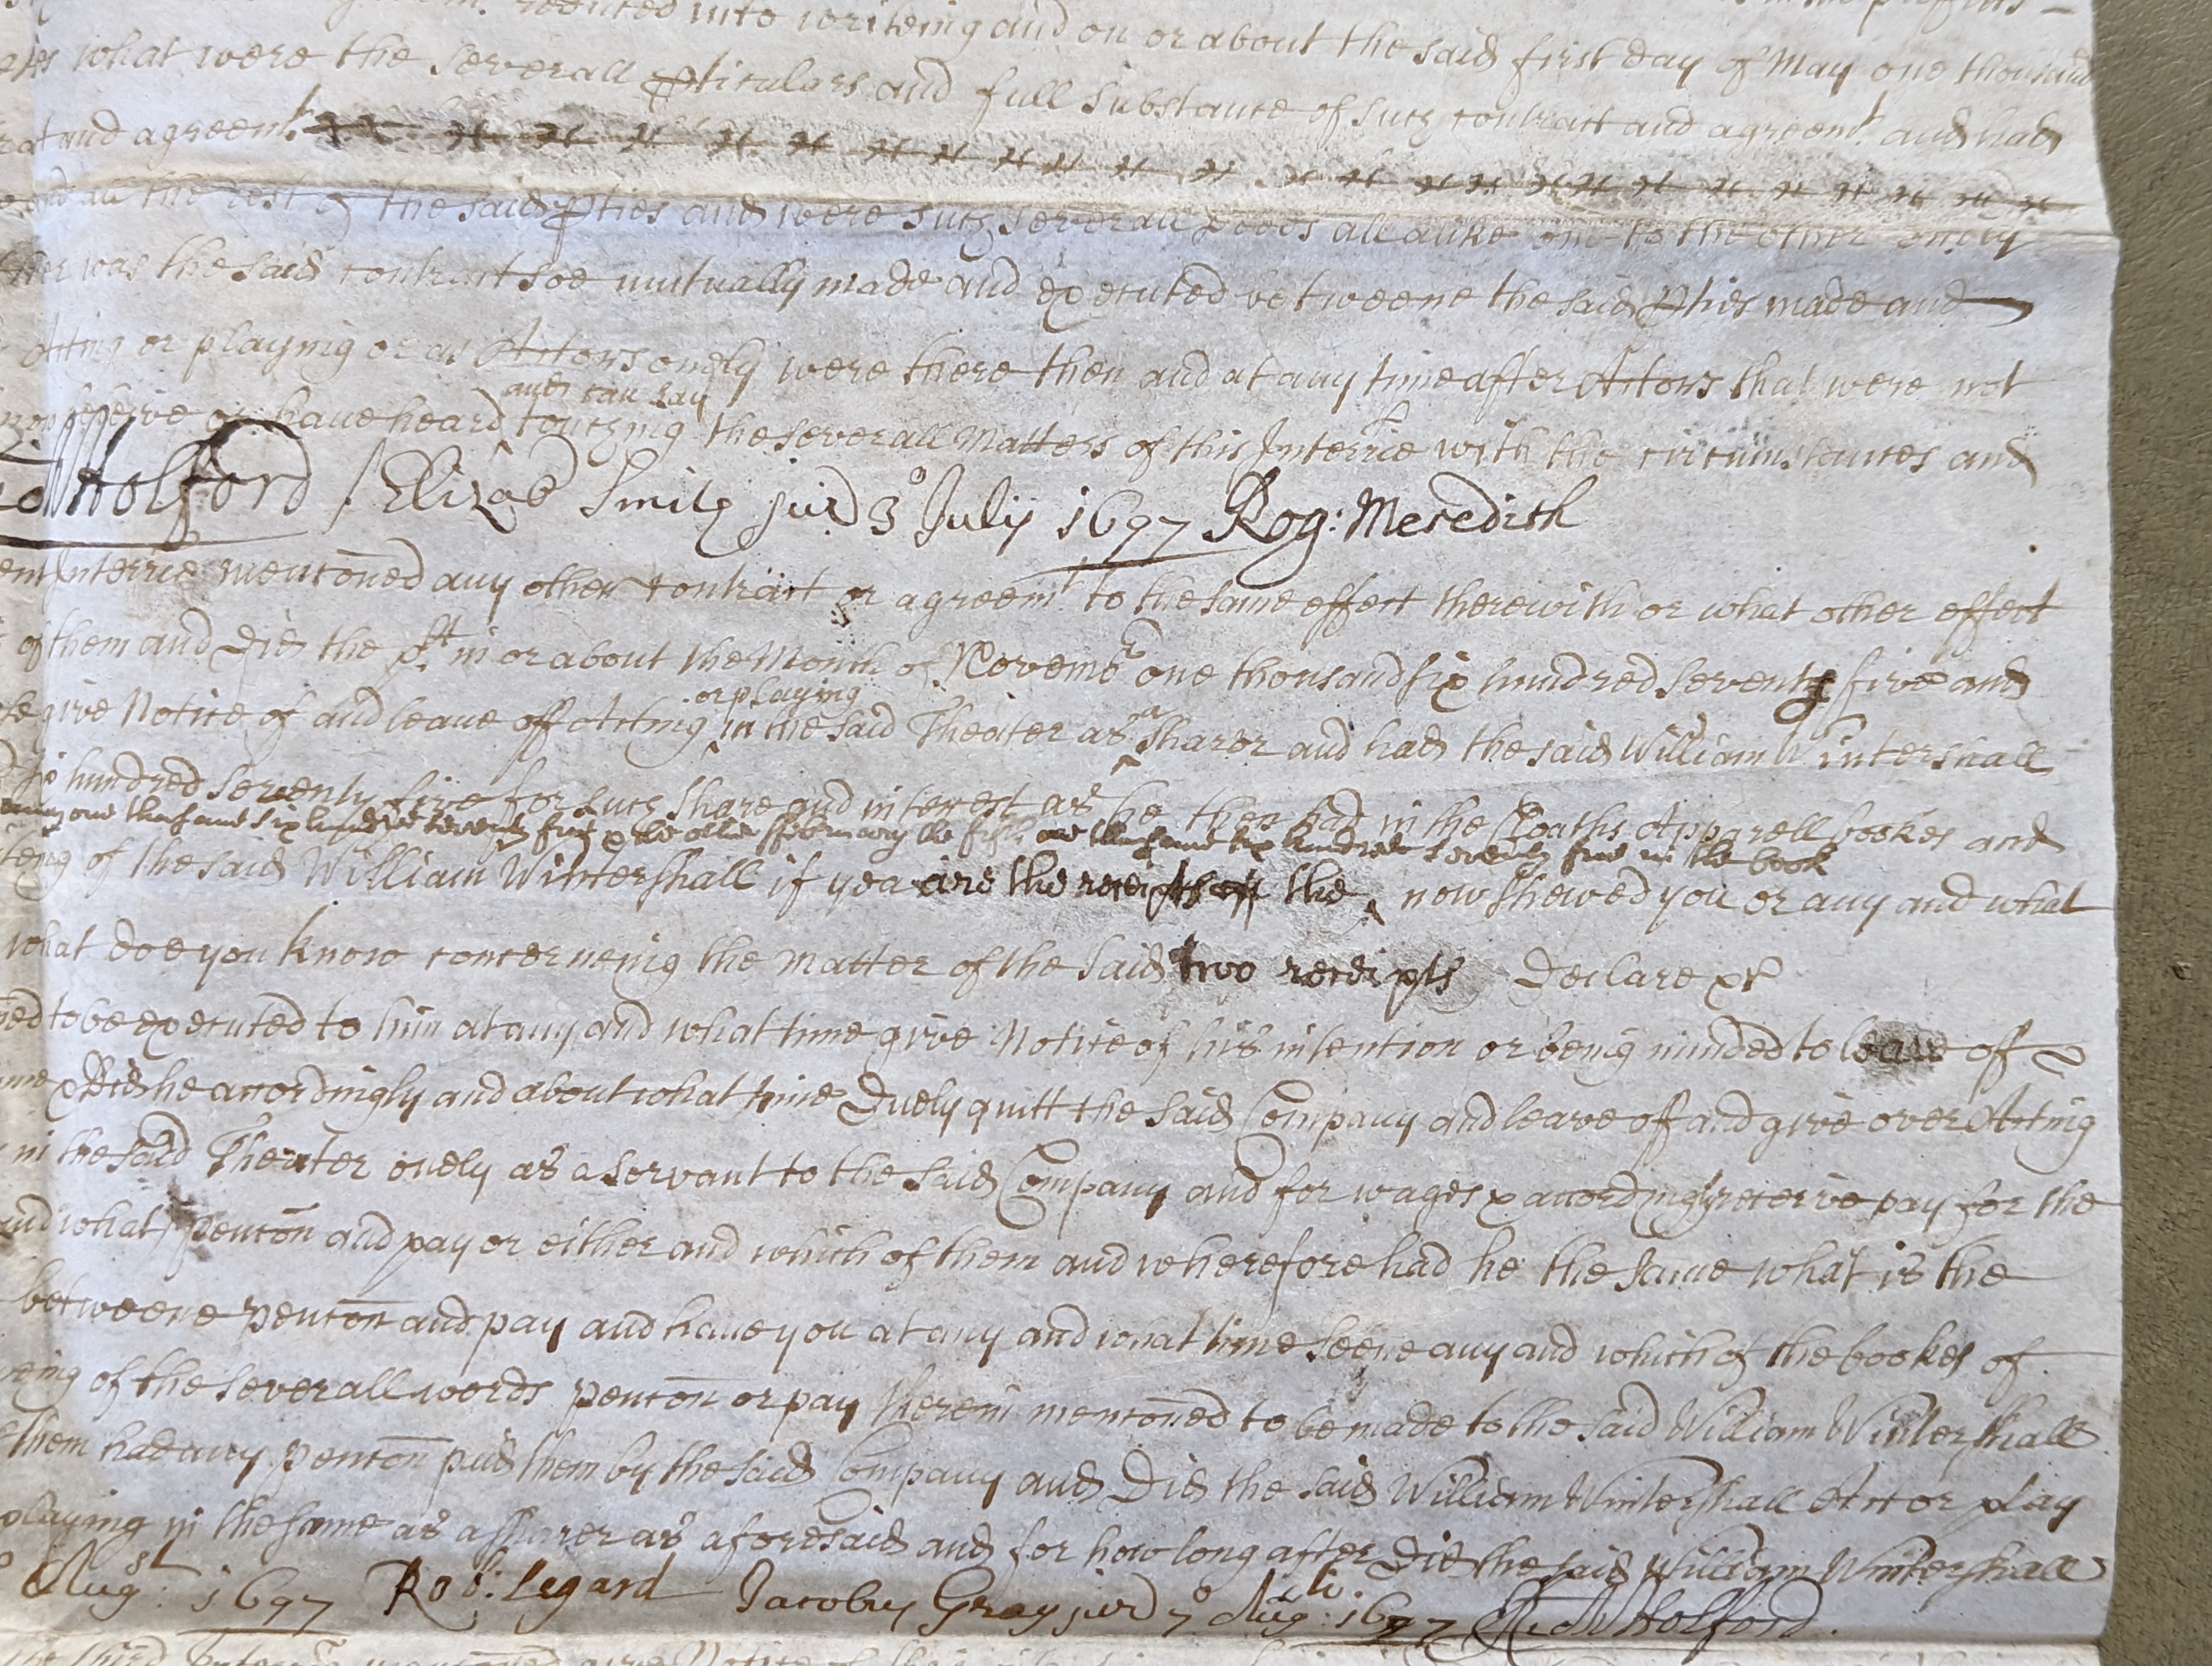 reduced into writeing and on or about the said first day of May one thousand
what were the severall pticulars and full substance of such contract and agreemt. and had
and agreemt.
all the rest of the said pties and were such severall Deeds all alike one to the other onely
was the said contract soe mutually made and executed betweene the said pties made and
Acting or playing or as Actors onely were there then and at any time after Actors that were not
and can say
or have heard touching the severall Matters of this Interrie with the circumstances and
Holford / Elizab Smith jur 3o July 1697 Rog: Meredith
Interrie menconed any other contract or agreemt. to the same effect therewith or what other effect
of them and Did the plt in or about the Month of Novembr one thousand six hundred seventy five and
or playing
give Notice of and leave off Acting in the said Theater as a Sharer and had the said William Wintershall
hundred seventy five for such Share and interest as he then had in the Cloaths Apparell bookes and
one thousand six hundred seventy five & the other ffebruary the first one thousand six hundred seventy five in the book
of the said William Wintershall if yea are the receipts the now shewed you or any and what
what doe you know concerneing the Matter of the said two receipts Declare &c
to be executed to him at any and what time give Notice of his intention or being minded to leave off &
& Did he accordingly and about what time Duely quitt the said Company and leave off and give over Acting
in the said Theater onely as a servant to the said Company and for wages & accordingly receive pay for the
and what pencon and pay or either and which of them and wherefore had he the same what is the
betweene pencon and pay and have you at any and what time seene any and which of the bookes of
of the severall words pencon or pay therein menconed to be made to the said William Wintershall
them had any pencon paid them by the said Company and Did the said William Wintershall Act or play
playing in the same as a sharer as aforesaid and for how long after Did the said William Wintershall
Augst. 1697 Rob: Legard Jacobus Gray jur 7o Aug: 1697 Ri: Holford.